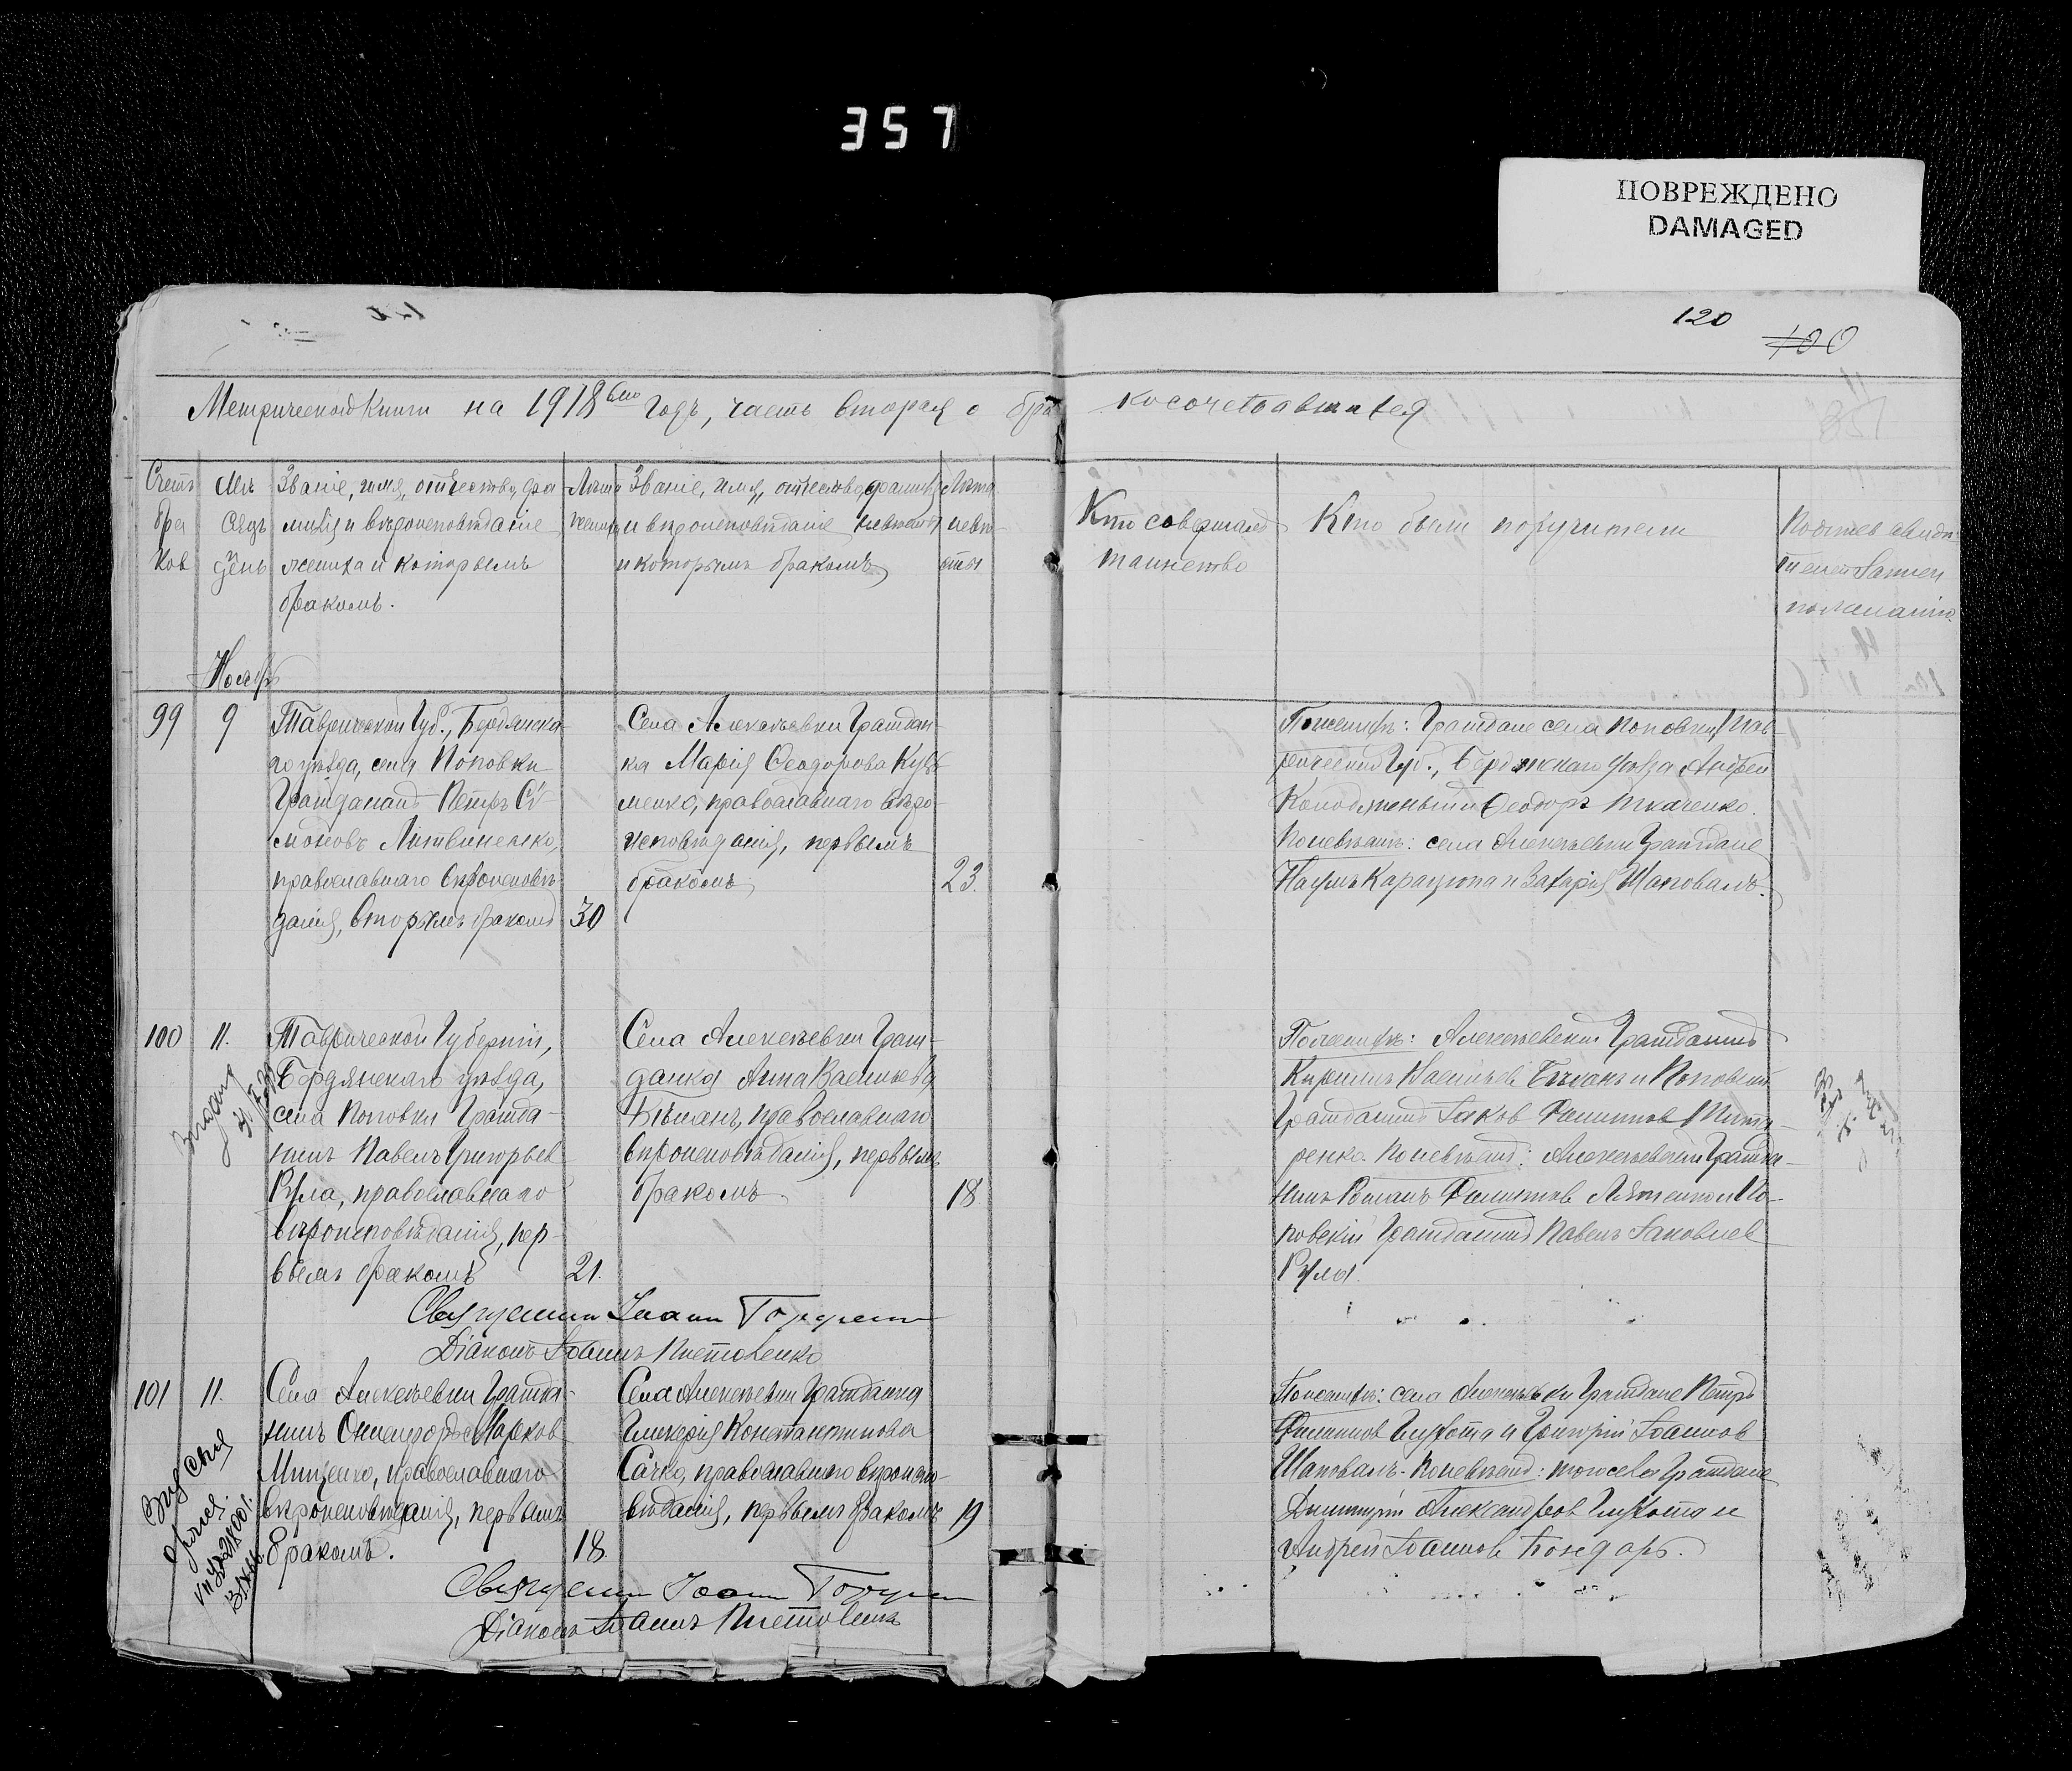 357
ПОВРЕЖДЕНО
DAMAGED
120
100
Метрической Книги на 1918 год, часть вторая о бра
косочетавшихся
Счетъ бра ков
Мѣ сяцъ день
Званіе, имя, отчество, фа
милія и вѣроисповѣданіе
жениха и которымъ
бракомъ.
Лѣта жениха
Званіе, имя, отчество, фамилія
и вѣроисповѣданіе невѣсты
и которымъ бракомъ
Лѣта невѣ сты
Кто совершалъ
таинство
Кто были поручители
Ноябрь
99
9
Таврической Губ., Бердянска
го уѣзда, села Поповки
Гражданинъ Петръ Си
моновъ Литвиненко,
православнаго вѣроисповѣ
данія, вторымъ бракомъ
30
Села Алексѣевки Граждан
ка Марія Ѳеодорова Кузь
менко, православнаго вѣро
исповѣданія, первымъ
бракомъ
23.
По женихѣ: Граждане села Поповки Тав
рической Губ., Бердянскаго уѣзда Андрей
Колодяжный и Ѳеодоръ Ткаченко.
По невѣстѣ: села Алексѣевки Граждане
Наумъ Карацюпа и Захарій Шаповалъ.
100
11.
Таврической Губерніи,
Бердянскаго уѣзда,
села Поповки Гражда-
нинъ Павелъ Григорьев
Рула, православнаго
вѣроисповѣданія, пер-
вымъ бракомъ
21.
Села Алексѣевки Граж-
данка Анна Васильева
Бѣлканъ, православнаго
вѣроисповѣданія, первымъ
бракомъ
18
По женихѣ: Алексѣевскій Гражданинъ
Кириллъ Васильев и Поповскій
Гражданинъ Іаков Филиппов Тита-
ренко. По невѣстѣ: Алексѣевскій Гражда-
нинъ Романъ Филиппов и По-
повскій Гражданинъ Павелъ Іаковлев
Рула.
Священник Іоанн
Діаконъ Іоаннъ
101
11.
Села Алексѣевки Гражда-
нинъ Онисифоръ Марков
Мищенко, православнаго
вѣроисповѣданія, первымъ
бракомъ.
18.
Села Алексѣевки Гражданка
Гликерія Константинова
Сачко, православнаго вѣроиспо-
вѣданія, первымъ бракомъ
19
По женихѣ: села Алексѣевки Граждане Петръ
Филиппов и Григорій Іоаннов
Шаповалъ. По невѣстѣ: того же села Граждане
Димитрій Александров и
Андрей Іоаннов Бондарь.
Священник Іоанн
Діаконъ Іоаннъ